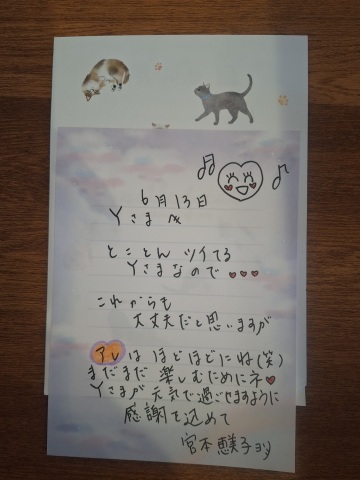 6月13日
Yさま へ
とことん ツイてる
Yさまなので ♥♥♥
これからも
大丈夫だと思いますが
アレは ほどほどにね(笑)
まだまだ 楽しむためにネ♥
Yさまが元気で過ごせますように
感謝を込めて
宮本恵子ヨリ